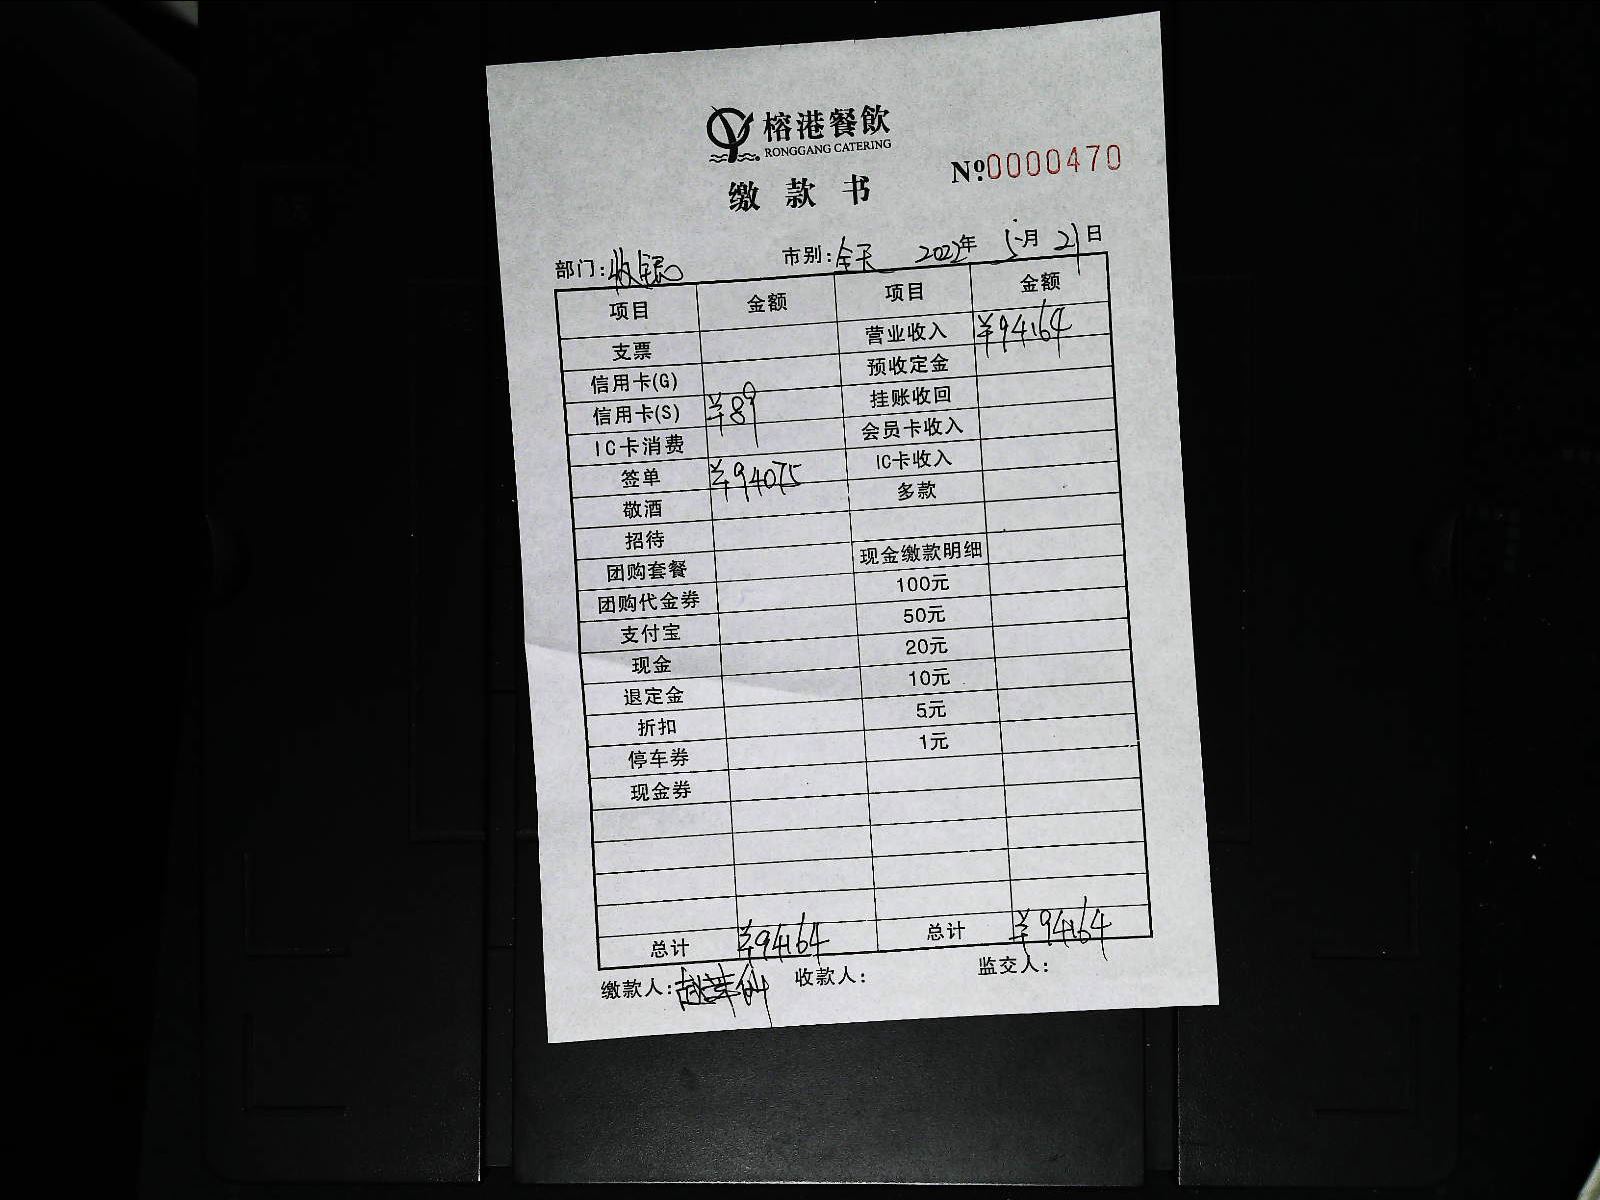 榕港餐飲
RONGGANG CATERING
№:0000470
缴款书
部门:收银 市别:全天 2022年 5月 21日
项目 金额 项目 金额
支票 营业收入 ¥94164
信用卡(G) 预收定金
信用卡(S) ¥89 挂账收回
IC卡消费 会员卡收入
签单 ¥94075 IC卡收入
敬酒 多款
招待
团购套餐 现金缴款明细
团购代金券 100元
支付宝 50元
现金 20元
退定金 10元
折扣 5元
停车券 1元
现金券
总计 ¥94164 总计 ¥94164
缴款人: 收款人: 监交人: